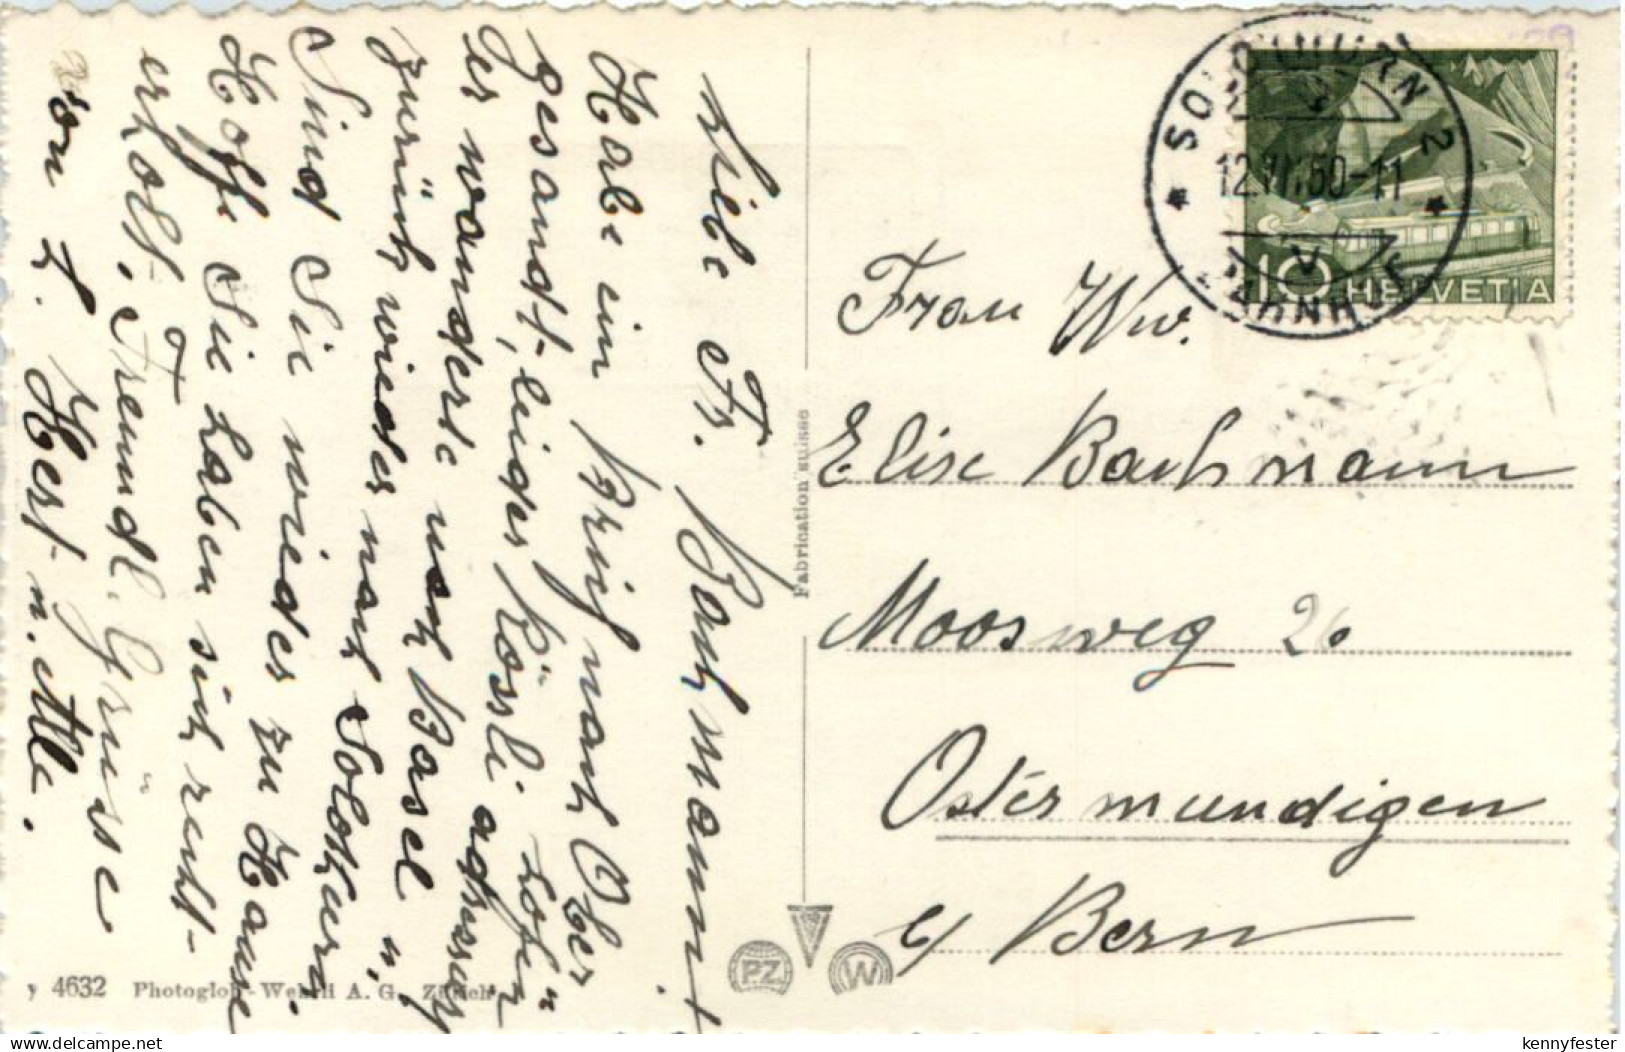 Liebe Fr. Bachmann!
Habe ein Brief nach Ober
gesandt, leider Rössli
Er wanderte nach Basel "
zurück wieder nach Solothurn.
Sind Sie wieder zu Hause
Hoffe Sie haben sich recht-
erholt, Freundl. Grüsse
von F. Herf n. Alle.
SOLOTHURN 2
12.VI.50-11
V
BAHNHOF
10 HELVETIA
Frau Ww.
Elise Bachmann
Moosweg 26
Ostermundigen
b/ Bern
Fabrication suisse
P.Z.
W
4632 Photoglob-Wehrli A. G. Zürich
kennyfester